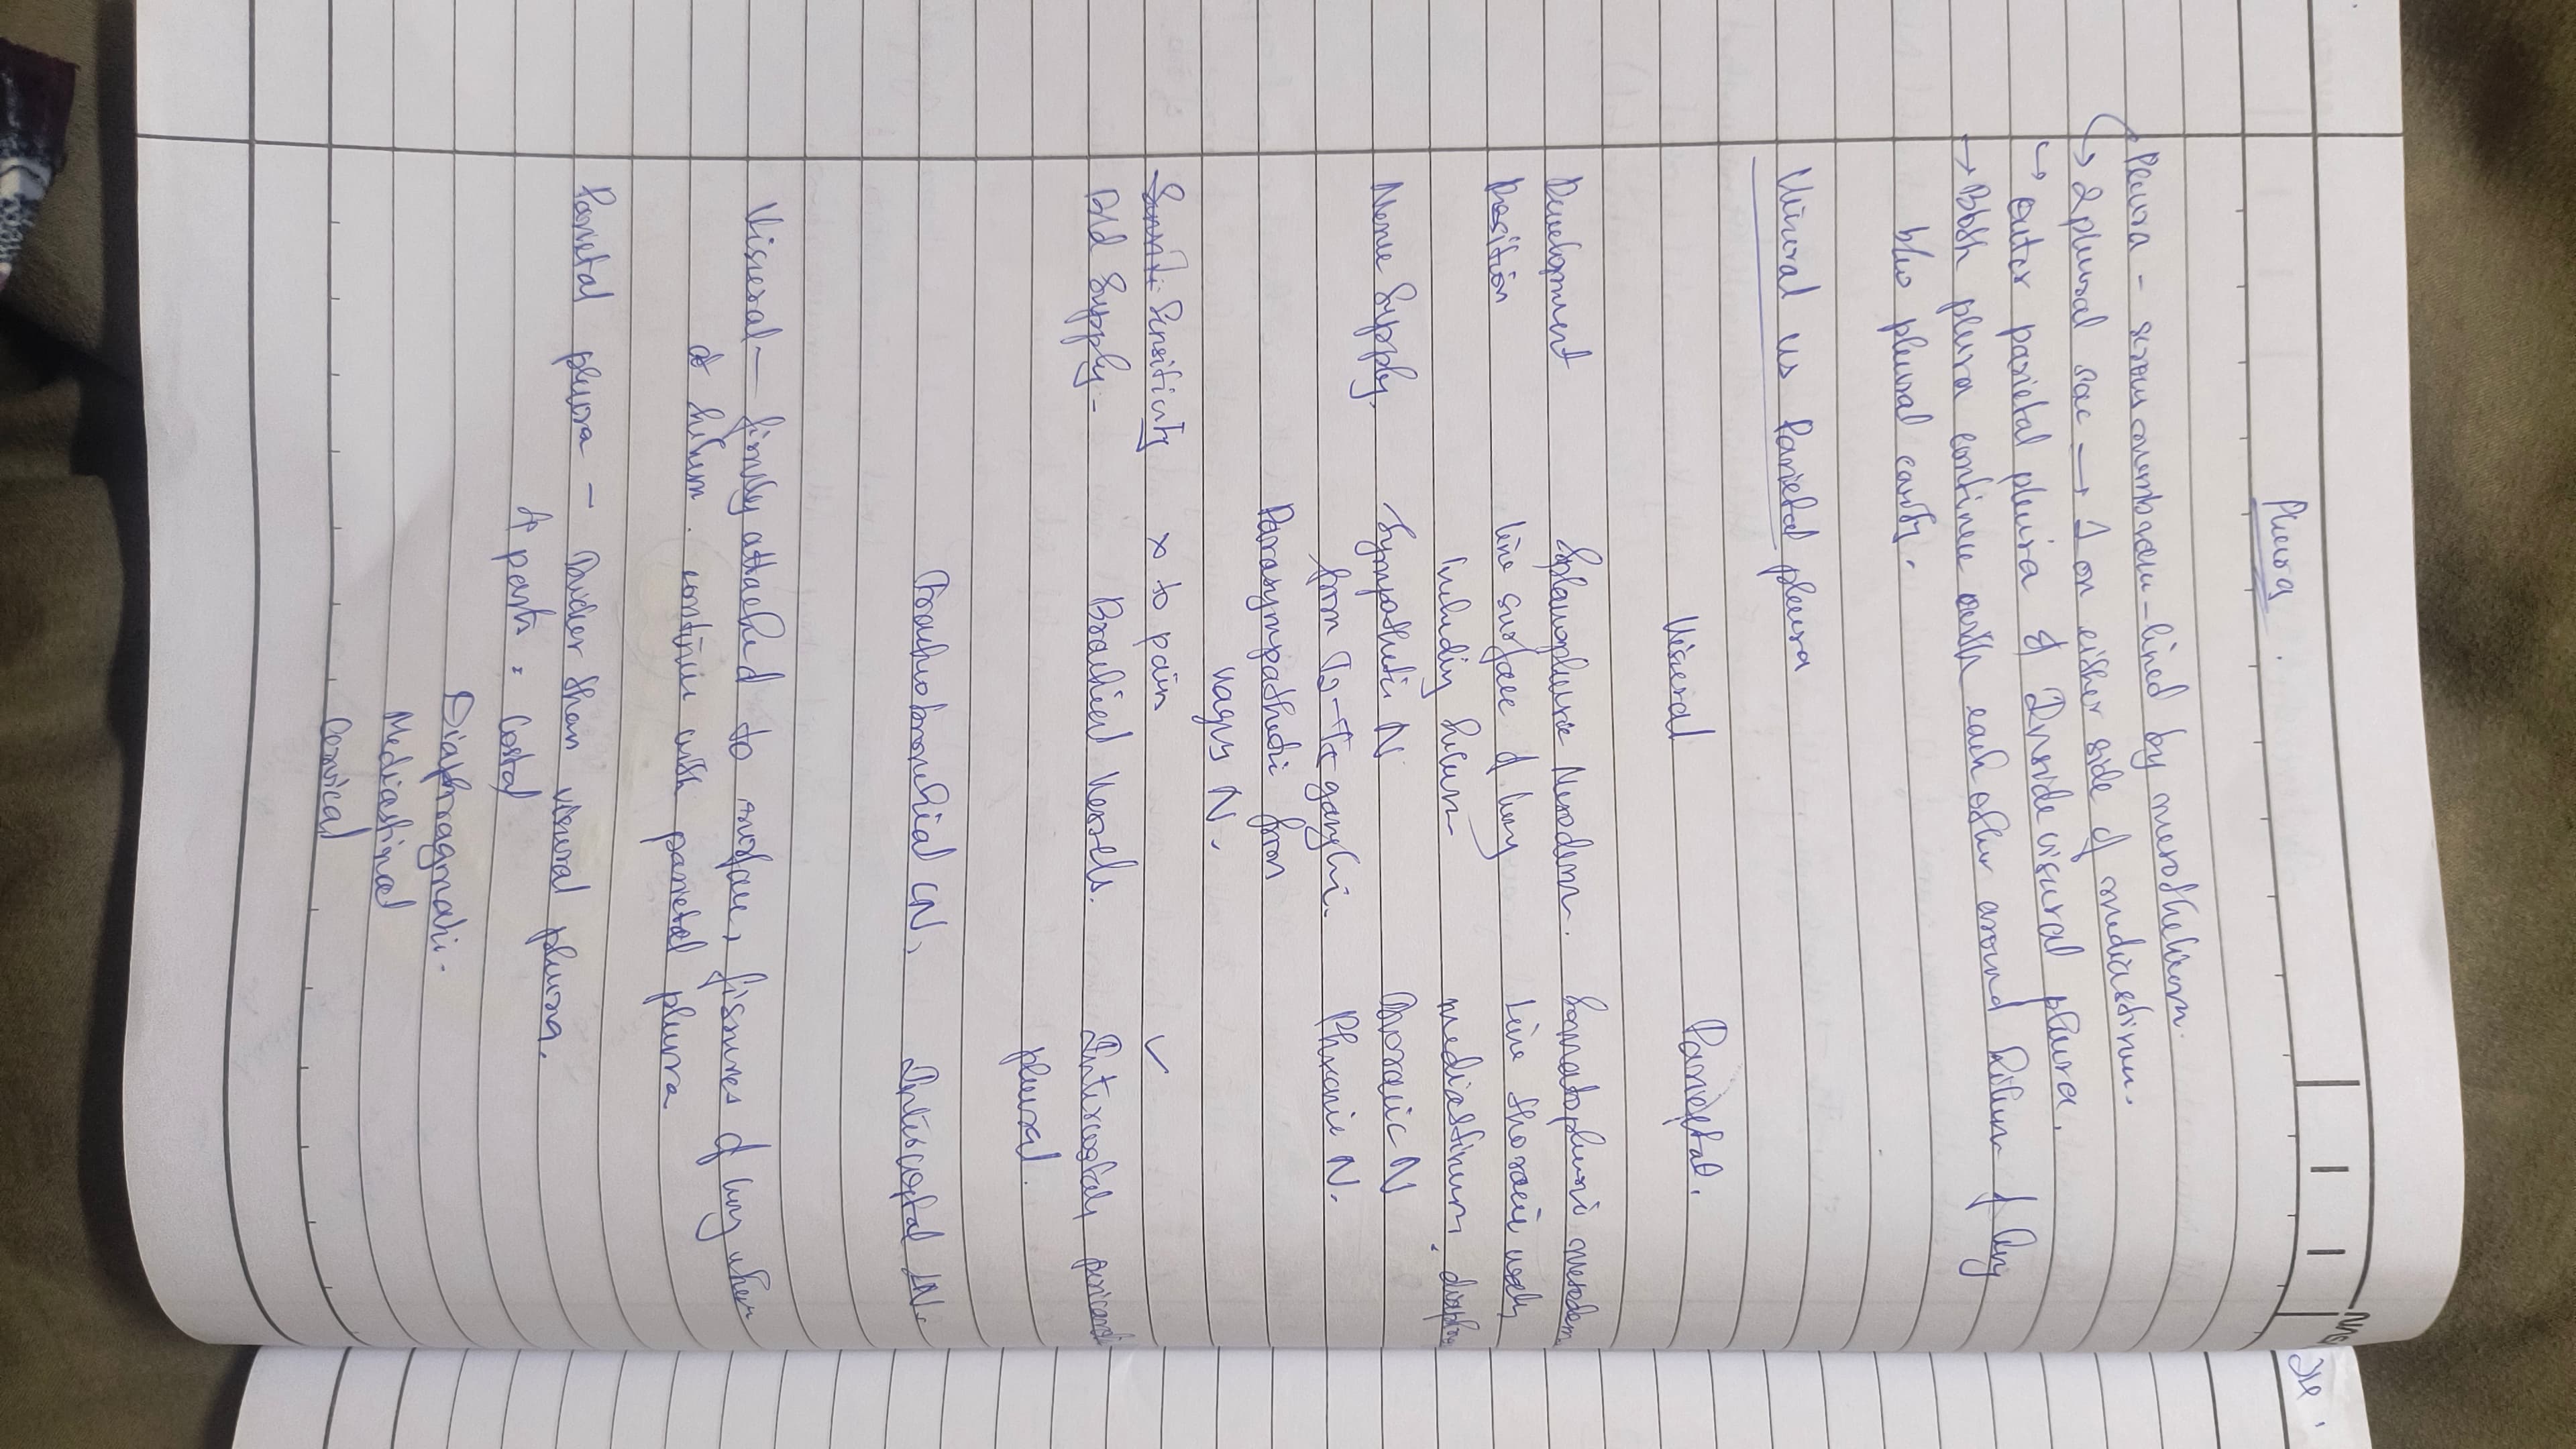 Pleura.
Pleura - serous membrane - lined by mesothelium.
→ 2 pleural sac → 1 on either side of mediastinum.
→ outer parietal pleura & Inside visceral pleura.
→ Both pleura continue with each other around hilum of lung
b/w pleural cavity.
Visceral vs Parietal pleura
Visceral Parietal.
Development Splanchnopleuric Mesoderm. Somatopleuric mesoderm
Position line surface of lung Line thoracic wall,
including hilum mediastinum, diaphra
Nerve Supply, Sympathetic N Thoracic N
from T2-T5 ganglia. Phrenic N.
Parasympathetic from
vagus N.
Sensitivity x to pain ✓
Bld Supply - Brachial Vessels. Intercostal, pericardi
pleural.
Tracheobronchial LN, Intercostal LN.
Visceral - firmly attached to surface, fissures of lung when
at hilum. continue with parietal pleura
Parietal pleura - thicker than visceral pleura.
4 parts: Costal
Diaphragmatic.
Mediastinal
Cervical